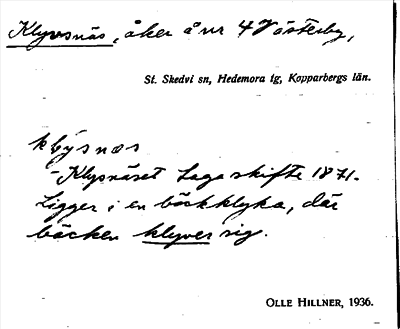 Klyvsnäs, åker å nr 4 Västerby,
St. Skedvi sn, Hedemora tg, Kopparbergs län.
klysnæs
- Klysnäset Laga skifte 1871.
Ligger i en bäckklyka, där
bäcken klyver sig.
OLLE HILLNER, 1936.